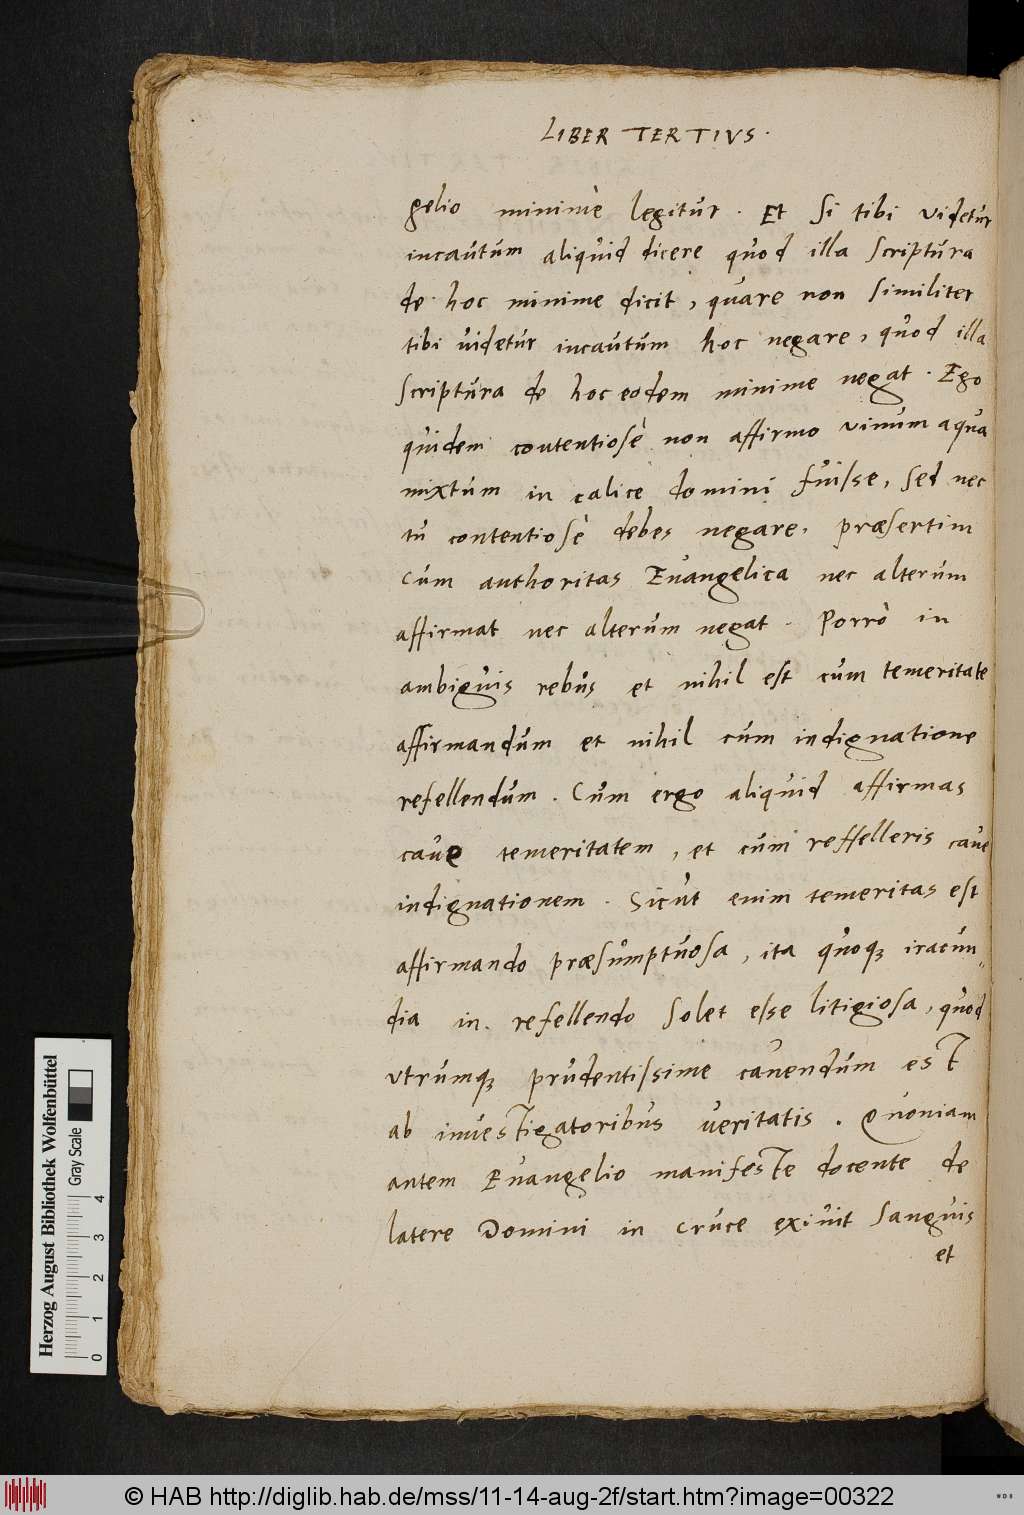 LIBER TERTIVS.
gelio minimè legitur. Et si tibi videtur
incautum aliquid dicere quod illa scriptura
de hoc minime dicit, quare non similiter
tibi videtur incautum hoc negare, quod illa
scriptura de hoc eodem minime negat. Ego
quidem contentiosè non affirmo vinum aqua
mixtum in calice domini fuisse, sed nec
tu contentiosè debes negare, præsertim
cum authoritas Evangelica nec alterum
affirmat nec alterum negat. Porrò in
ambiguis rebus et nihil est cum temeritate
affirmandum et nihil cum indignatione
refellendum. Cum ergo aliquid affirmas
cave temeritatem, et cum reffelleris cave
indignationem. Sicut enim temeritas est
affirmando præsumptuosa, ita quoqꝫ iracun„
dia in refellendo solet esse litigiosa, quod
utrumqꝫ prudentissime cavendum est
ab investigatoribus veritatis. Quoniam
antem Evangelio manifeste docente de
latere Domini in cruce exivit sanguis
et
Herzog August Bibliothek Wolfenbüttel
Gray Scale
0 1 2 3 4
© HAB http://diglib.hab.de/mss/11-14-aug-2f/start.htm?image=00322